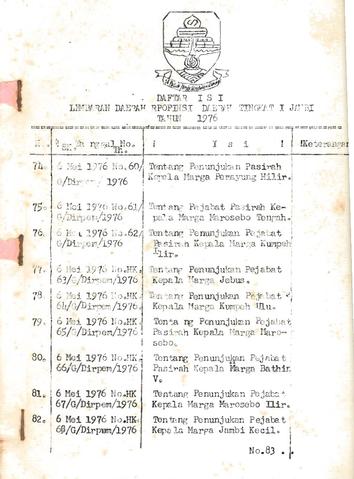 DAFTAR I S I
LEMBARAN DAERAH RPOPINSI DAERAH TINGKAT I JAMBI
TAHUN 1976
I s i ! !Keterangan
74. 6 Mei 1976 No.60/ Tentang Penunjukan Pasirah
G/Dirpem/ 1976 Kepala Marga Perayung Hilir.
75. 6 Mei 1976 No.61/ Tentang Pejabat Pasirah Ke-
G/Dirpem/1976 pala Marga Marosebo Tengah.
76. 6 Mei 1976 No.62/ Tentang Penunjukan Pejabat
G/Dirpem/1976 Pasirah Kepala Marga Kumpeh
Ilir.
77. 6 Mei 1976 No.HK Tentang Penunjukan Pejabat
63/G/Dirpem/1976 Kepala Marga Jebus.
78 6 Mei 1976 No.HK Tentang Penunjukan Pejabat
64/G/Dirpem/1976 Kepala Marga Kumpeh Ulu.
79. 6 Mei 1976 No.HK Tenta ng Penunjukan Pejabat
65/G/Dirpem/1976 Pasirah Kepala Marga Maro-
sebo.
80. 6 Mei 1976 No.HK Tentang Penunjukan Pejabat
66/G/Dirpem/1976 Pasirah Kepala Marga Bathin
V.
81. 6 Mei 1976 No.HK Tentang Penunjukan Pejabat
67/G/Dirpem/1976 Kepala Marga Marosebo Ilir.
82. 6 Mei 1976 No.HK Tentang Penunjukan Pejabat
68/G/Dirpem/1976 Kepala Marga Jambi Kecil.
No.83 . .